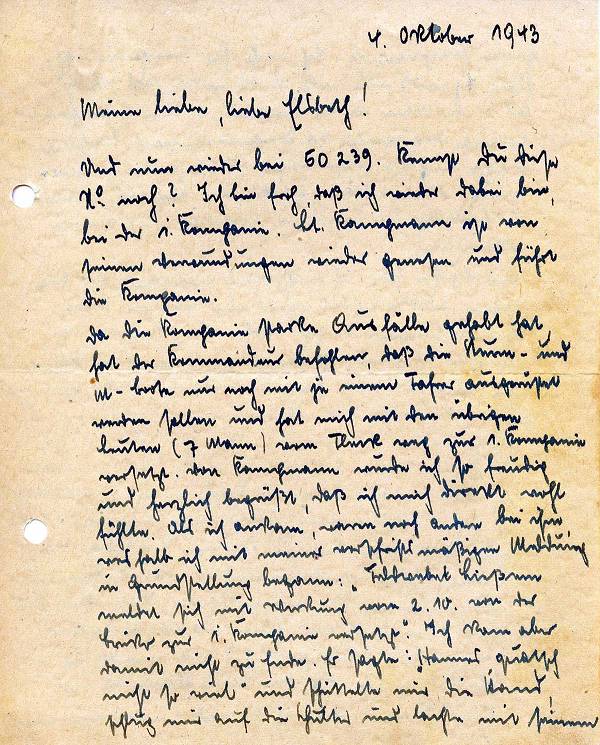 4. Oktober 1943
Meine liebe, liebe Elsbeth!
Und nun wieder bei 50 239. Kennst Du diese
No. noch? Ich bin froh, daß ich wieder dabei bin,
bei der 1. Kompanie. Lt. Kampmann ist von
seinen Verwundungen wieder genesen und führt
die Kompanie.
Da die Kompanie starke Ausfälle gehabt hat,
hat der Kommandeur befohlen, daß die Sturm- und
M-boote nur noch mit je einem Fahrer ausgerüstet
werden sollen und hat mich mit den übrigen
Leuten (7 Mann) vom Fleck weg zur 1. Kompanie
versetzt. Von Kampmann wurde ich so freudig
und herzlich begrüßt, daß ich mich direkt wohl
fühlte. Als ich ankam, waren noch andere bei ihm,
weshalb ich mit meiner vorschriftsmäßigen Meldung
in Grundstellung begann: „Feldwebel
meldet sich mit Wirkung vom 2.10. von der
zur 1. Kompanie versetzt." Ich kam aber
damit nicht zu Ende. Er sagte: „Hannes quatsch
nicht so viel" und schüttelte mir die Hand,
schlug mir auf die Schulter und lachte mit seinem